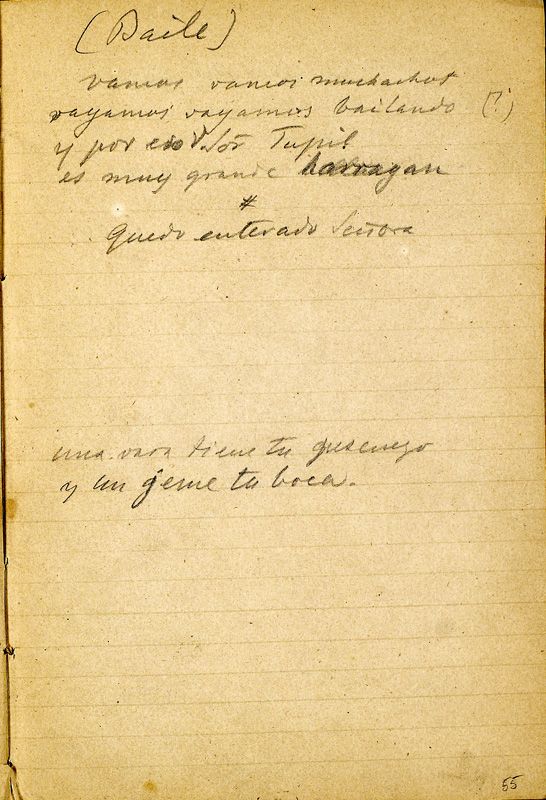 (Baile)
vamos vamos muchachos
vayamos vayamos bailando (?)
y por eso Sor Tupil
es muy grande haragan
#
Quedo enterado Señora
una vara tiene tu
y un jeme tu boca.
55